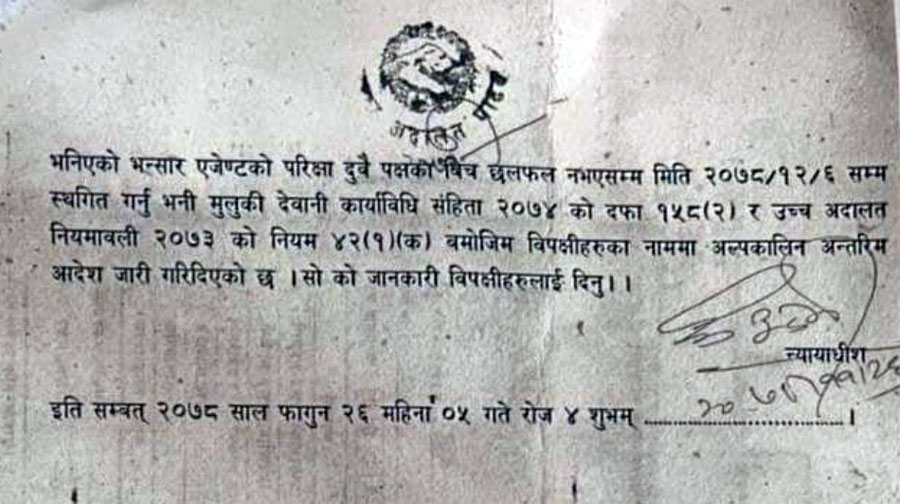 अदालत पाटन
भनिएको भन्सार एजेण्टको परिक्षा दुवै पक्षको बिच छलफल नभएसम्म मिति २०७८/१२/६ सम्म
स्थगित गर्नु भनी मुलुकी देवानी कार्यविधि संहिता २०७४ को दफा १५८(२) र उच्च अदालत
नियमावली २०७३ को नियम ४२(१)(क) बमोजिम विपक्षीहरुका नाममा अल्पकालिन अन्तरिम
आदेश जारी गरिदिएको छ । सो को जानकारी विपक्षीहरुलाई दिनु । ।
न्यायाधीश
२०७८/११/२६
इति सम्बत् २०७८ साल फागुन २६ महिना ०५ गते रोज ४ शुभम् ..............................।